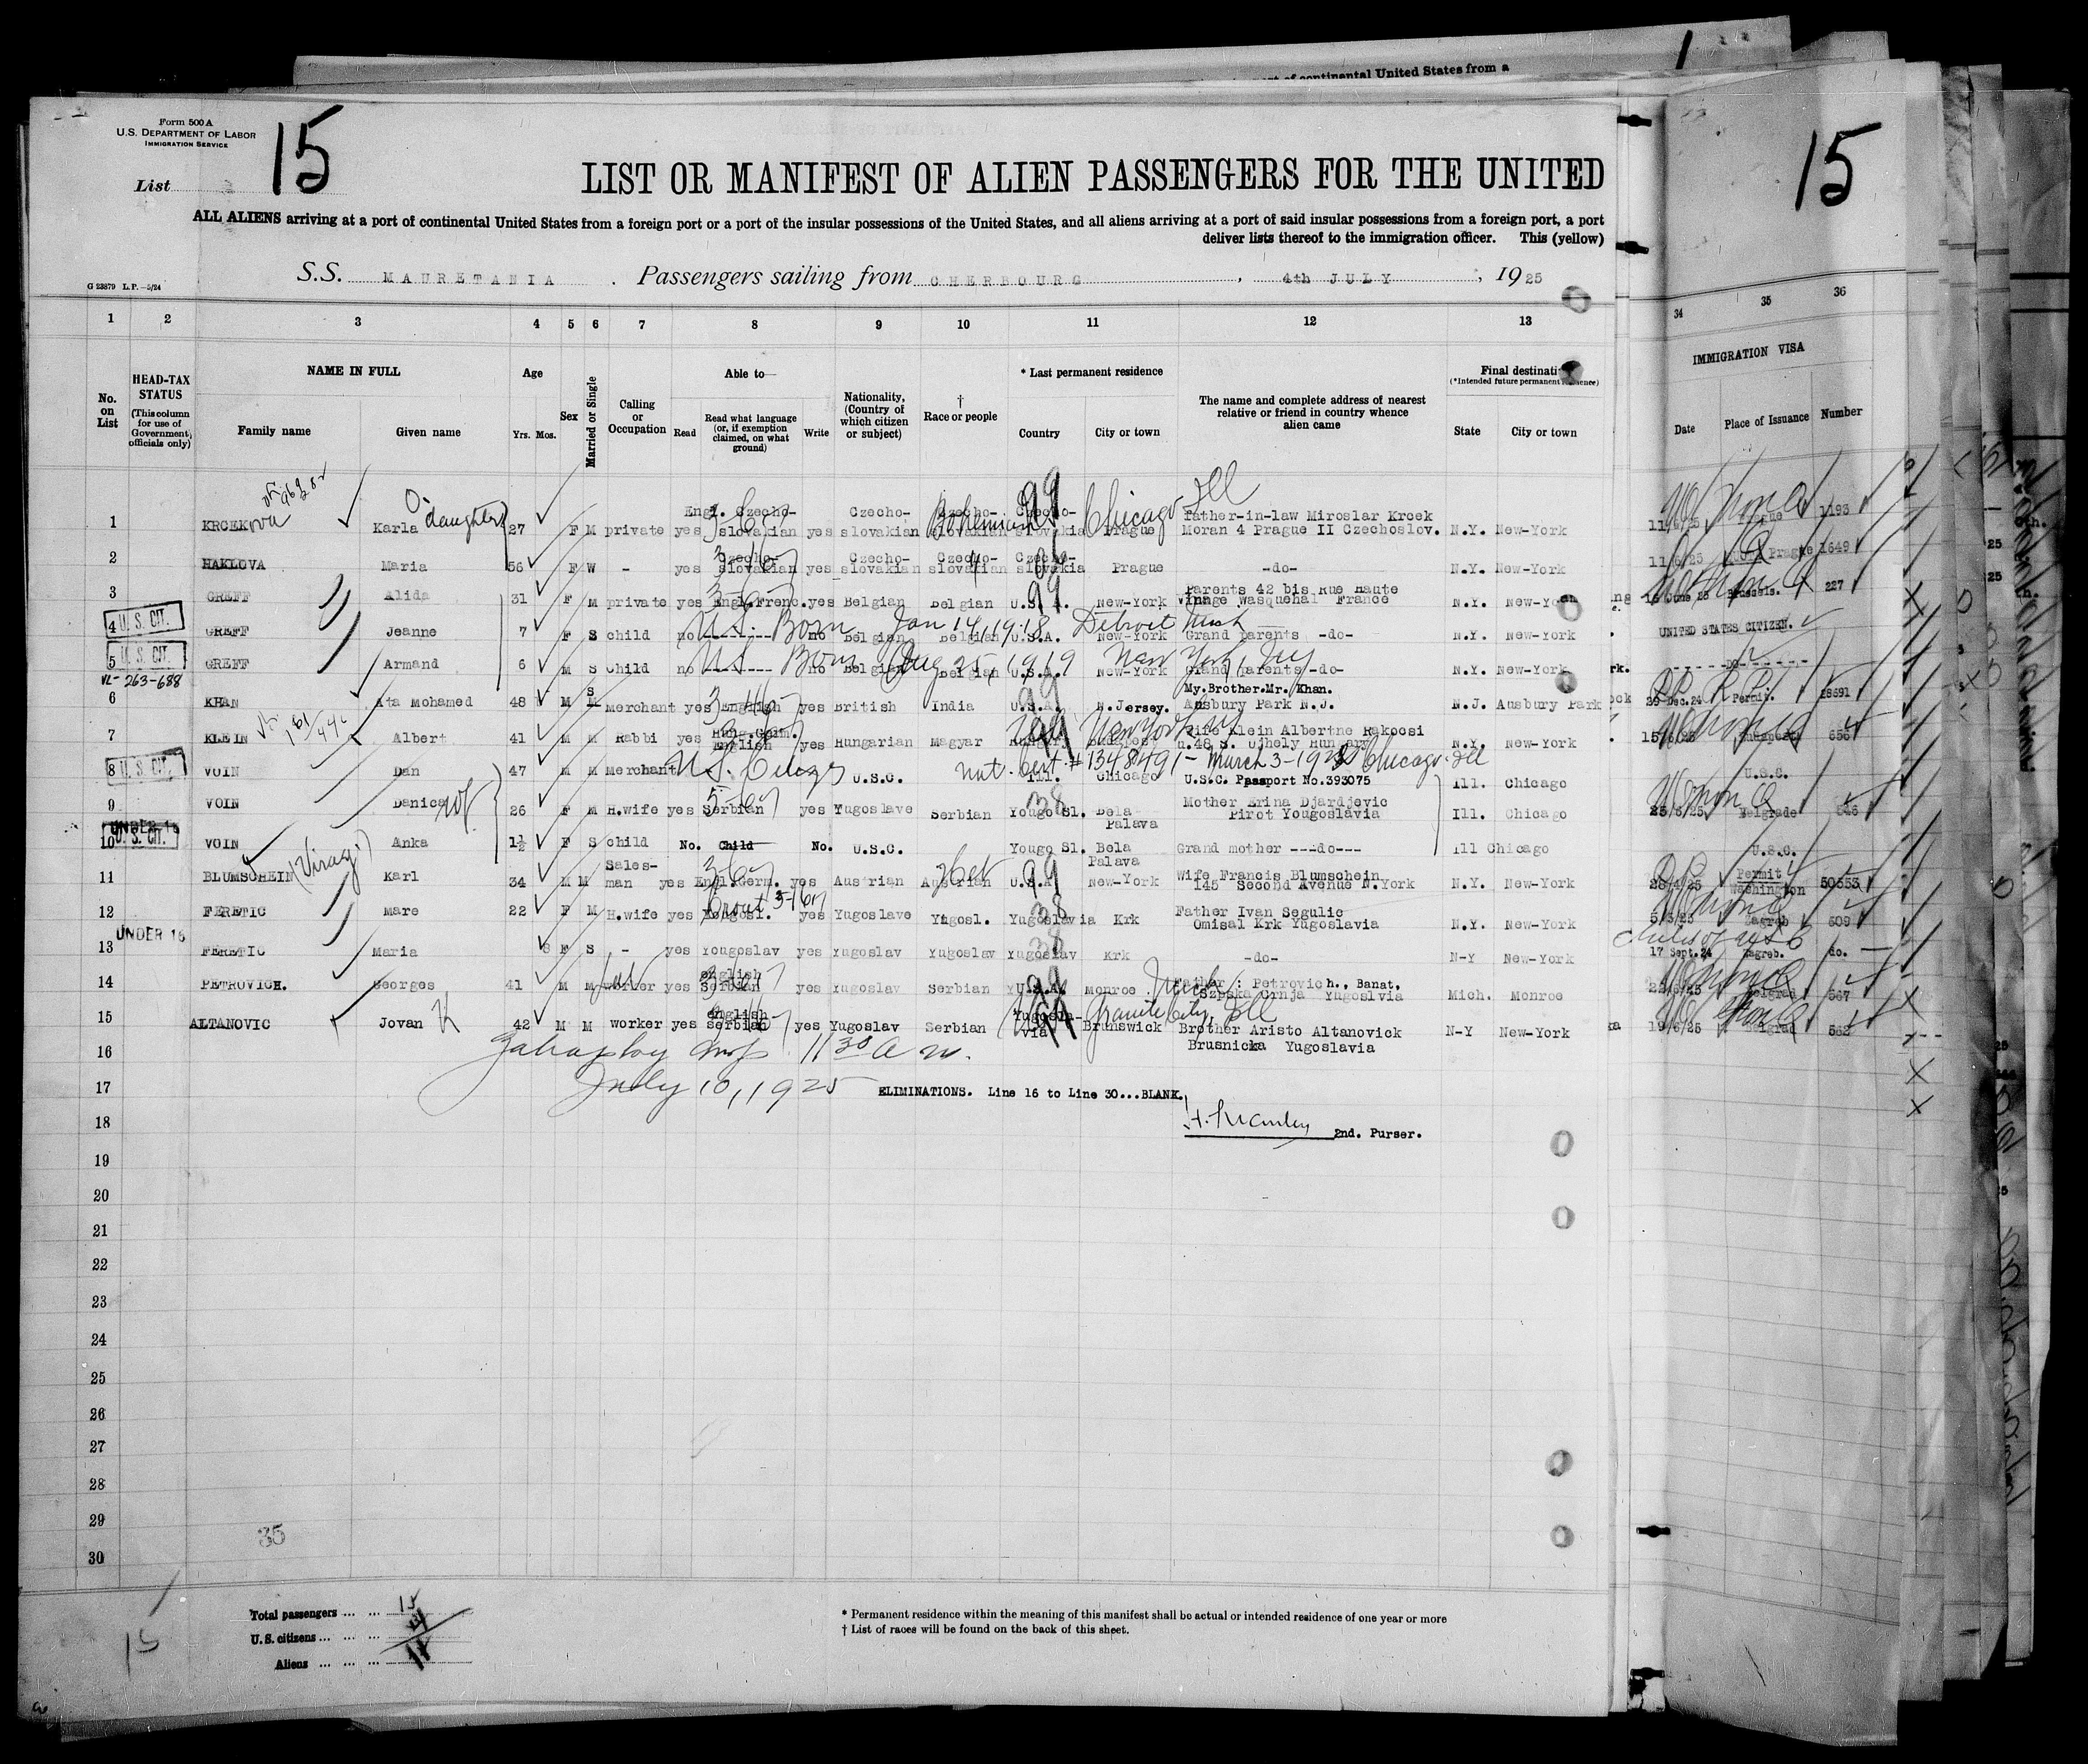 Form 500 A
U.S. DEPARTMENT OF LABOR
IMMIGRATION SERVICE
List 15
15
LIST OR MANIFEST OF ALIEN PASSENGERS FOR THE UNITED
ALL ALIENS arriving at a port of continental United States from a foreign port or a port of the insular possessions of the United States, and all aliens arriving at a port of said insular possessions from a foreign port, a port
deliver lists thereof to the immigration officer. This (yellow)
S.S. MAURETANIA. Passengers sailing from CHERBOURG, 4th JULY, 1925
G 23879 L.P.—5/24
1 2 3 4 5 6 7 8 9 10 11 12 13 34 35 36
No. on List
HEAD-TAX STATUS (This column for use of Government officials only)
NAME IN FULL
Family name Given name
Age
Yrs. Mos.
Sex
Married or Single
Calling or Occupation
Able to—
Read Read what language (or, if exemption claimed, on what ground) Write
Nationality, (Country of which citizen or subject)
† Race or people
* Last permanent residence
Country City or town
The name and complete address of nearest relative or friend in country whence alien came
Final destination
State City or town
IMMIGRATION VISA
Date Place of Issuance Number
1 KRCEKOVA Karla daughter 27 F M private yes Engl. Czecho-slovakian yes Czecho-slovakian Czecho-slovakian Bohemian Czecho-slovakia Prague Chicago Ill father-in-law Miroslar Krcek Moran 4 Prague II Czechoslov. N.Y. New-York 11/6/25 1193
2 HAKLOVA Maria 56 F W - yes Czecho-slovakian yes Czecho-slovakian Czecho-slovakian Czecho-slovakia Prague -do- N.Y. New-York 11/6/25 Prague 1649
3 GREFF Alida 31 F M private yes Engl.Frenc. yes Belgian Belgian U.S.A. New-York Parents 42 bis Rue haute Vinage Wasquehal France N.Y. New-York 16 June 25 Brussels. 227
4 U. S. CIT. GREFF Jeanne 7 F S child no ------ no Belgian Belgian U.S.A. New-York Grand parents -do- N.Y. New-York UNITED STATES CITIZEN.
U.S. Born Jan 14, 1918 Detroit Mich
5 U. S. CIT. GREFF Armand 6 M S Child no ------ no Belgian Belgian U.S.A. New-York Grand parents -do- N.Y. New-York -----DO-----
U.S. Born Aug 25, 1919 New York NY
VL-263-688
6 KHAN Ata Mohamed 48 M S Merchant yes English yes British India U.S.A. N.Jersey. My.Brother.Mr. Khan. Ausbury Park N.J. N.J. Ausbury Park 29 Dec.24 Permit. 28691
7 KLEIN Albert 41 M M Rabbi yes Hung.Germ. English yes Hungarian Magyar New York NY Wife Klein Albertne Rakocsi u.48 S. Ujhely Hungary N.Y. New-York 15/6/25 Budapest 656
8 U. S. CIT. VOIN Dan 47 M M Merchant U.S. Citizen U.S.C. Ill. Chicago U.S.C. Passport No.393075 Ill. Chicago U.S.C.
nat. Cert # 1348491 - March 3-19 Chicago Ill
9 VOIN Danica wf 26 F M H.wife yes Serbian yes Yugoslave Serbian Yougo Sl. Bela Palava Mother Erina Djardjevic Pirot Yougoslavia Ill. Chicago 25/6/25 Belgrade 546
UNDER 16
10 U. S. CIT. VOIN Anka 1½ F S child No. Child No. U.S.C. Yougo Sl. Bela Palava Grand mother ---do--- Ill Chicago U.S.C.
11 BLUMSCHEIN (Virag.) Karl 34 M M Sales-man yes Engl.Germ. yes Austrian Austrian Heb U.S.A New-York Wife Francis Blumschein 145 Second Avenue N.York N.Y. New-York 28/4/25 Permit Washington 50553
12 FERETIC Mare 22 F M H.wife yes Yougosl. Croat yes Yugoslave Yugosl. Yugoslavia Krk Father Ivan Segulic Omisal Krk Yugoslavia N.Y. New-York Zagreb 509
UNDER 16
13 FERETIC Maria 8 F S - yes Yougoslav yes Yugoslav Yugoslav Yugoslav Krk -do- N-Y New-York 17 Sept.24 Zagreb. do.
14 PETROVICH. Georges 41 M M worker yes English Serbian yes Yugoslav Serbian U.S.A. Monroe Mich Father: Petrovich., Banat. Szpska Crnja Yugoslvia Mich. Monroe Belgrad 567
15 ALTANOVIC Jovan 42 M M worker yes English serbian yes Yugoslav Serbian Yugoslavia Brunswick Granite City, Ill Brother Aristo Altanovick Brusnicka Yugoslavia N-Y New-York 19/6/25 Belgrad 562
16 11 30 A m.
17 July 10, 1925 ELIMINATIONS. Line 16 to Line 30...BLANK.
18 2nd. Purser.
19
20
21
22
23
24
25
26
27
28
29
30
35
Total passengers ... ... 15
U.S. citizens ... ... ... 4
Aliens ... ... ... 11
15
* Permanent residence within the meaning of this manifest shall be actual or intended residence of one year or more
† List of races will be found on the back of this sheet.